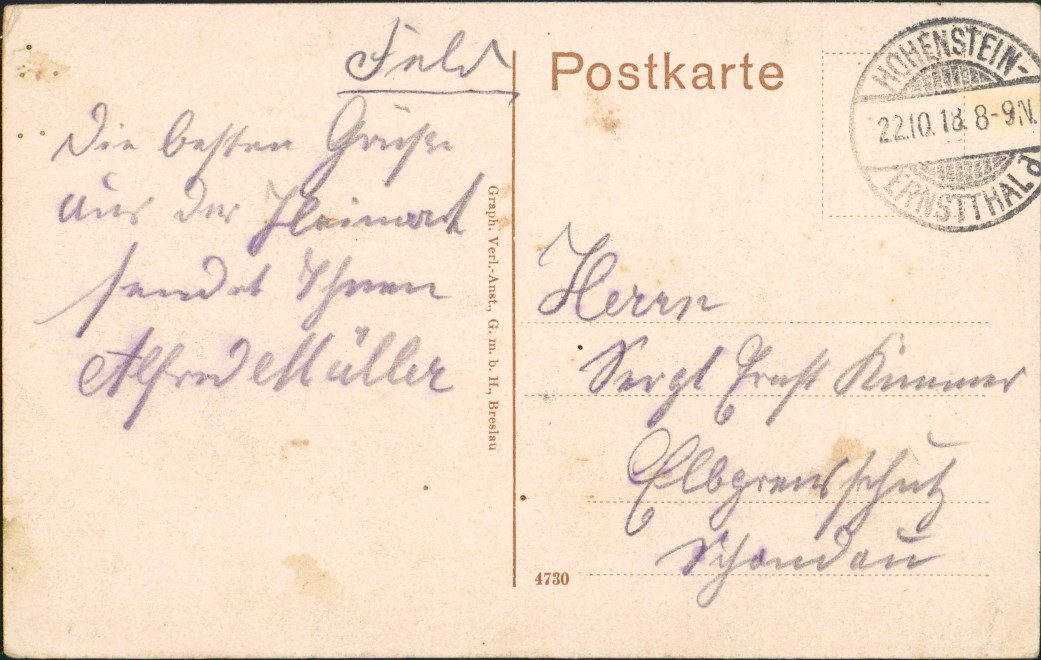 Feld
Die besten Grüße
aus der Heimat
sendet Ihnen
Alfred Müller
Graph. Verl.-Anst., G. m. b. H., Breslau
Postkarte
HOHENSTEIN-
22.10.18. 8-9N.
ERNSTTHAL d
Herrn
Sergt Ernst Kummer
Elbgrensschutz
Schandau
4730